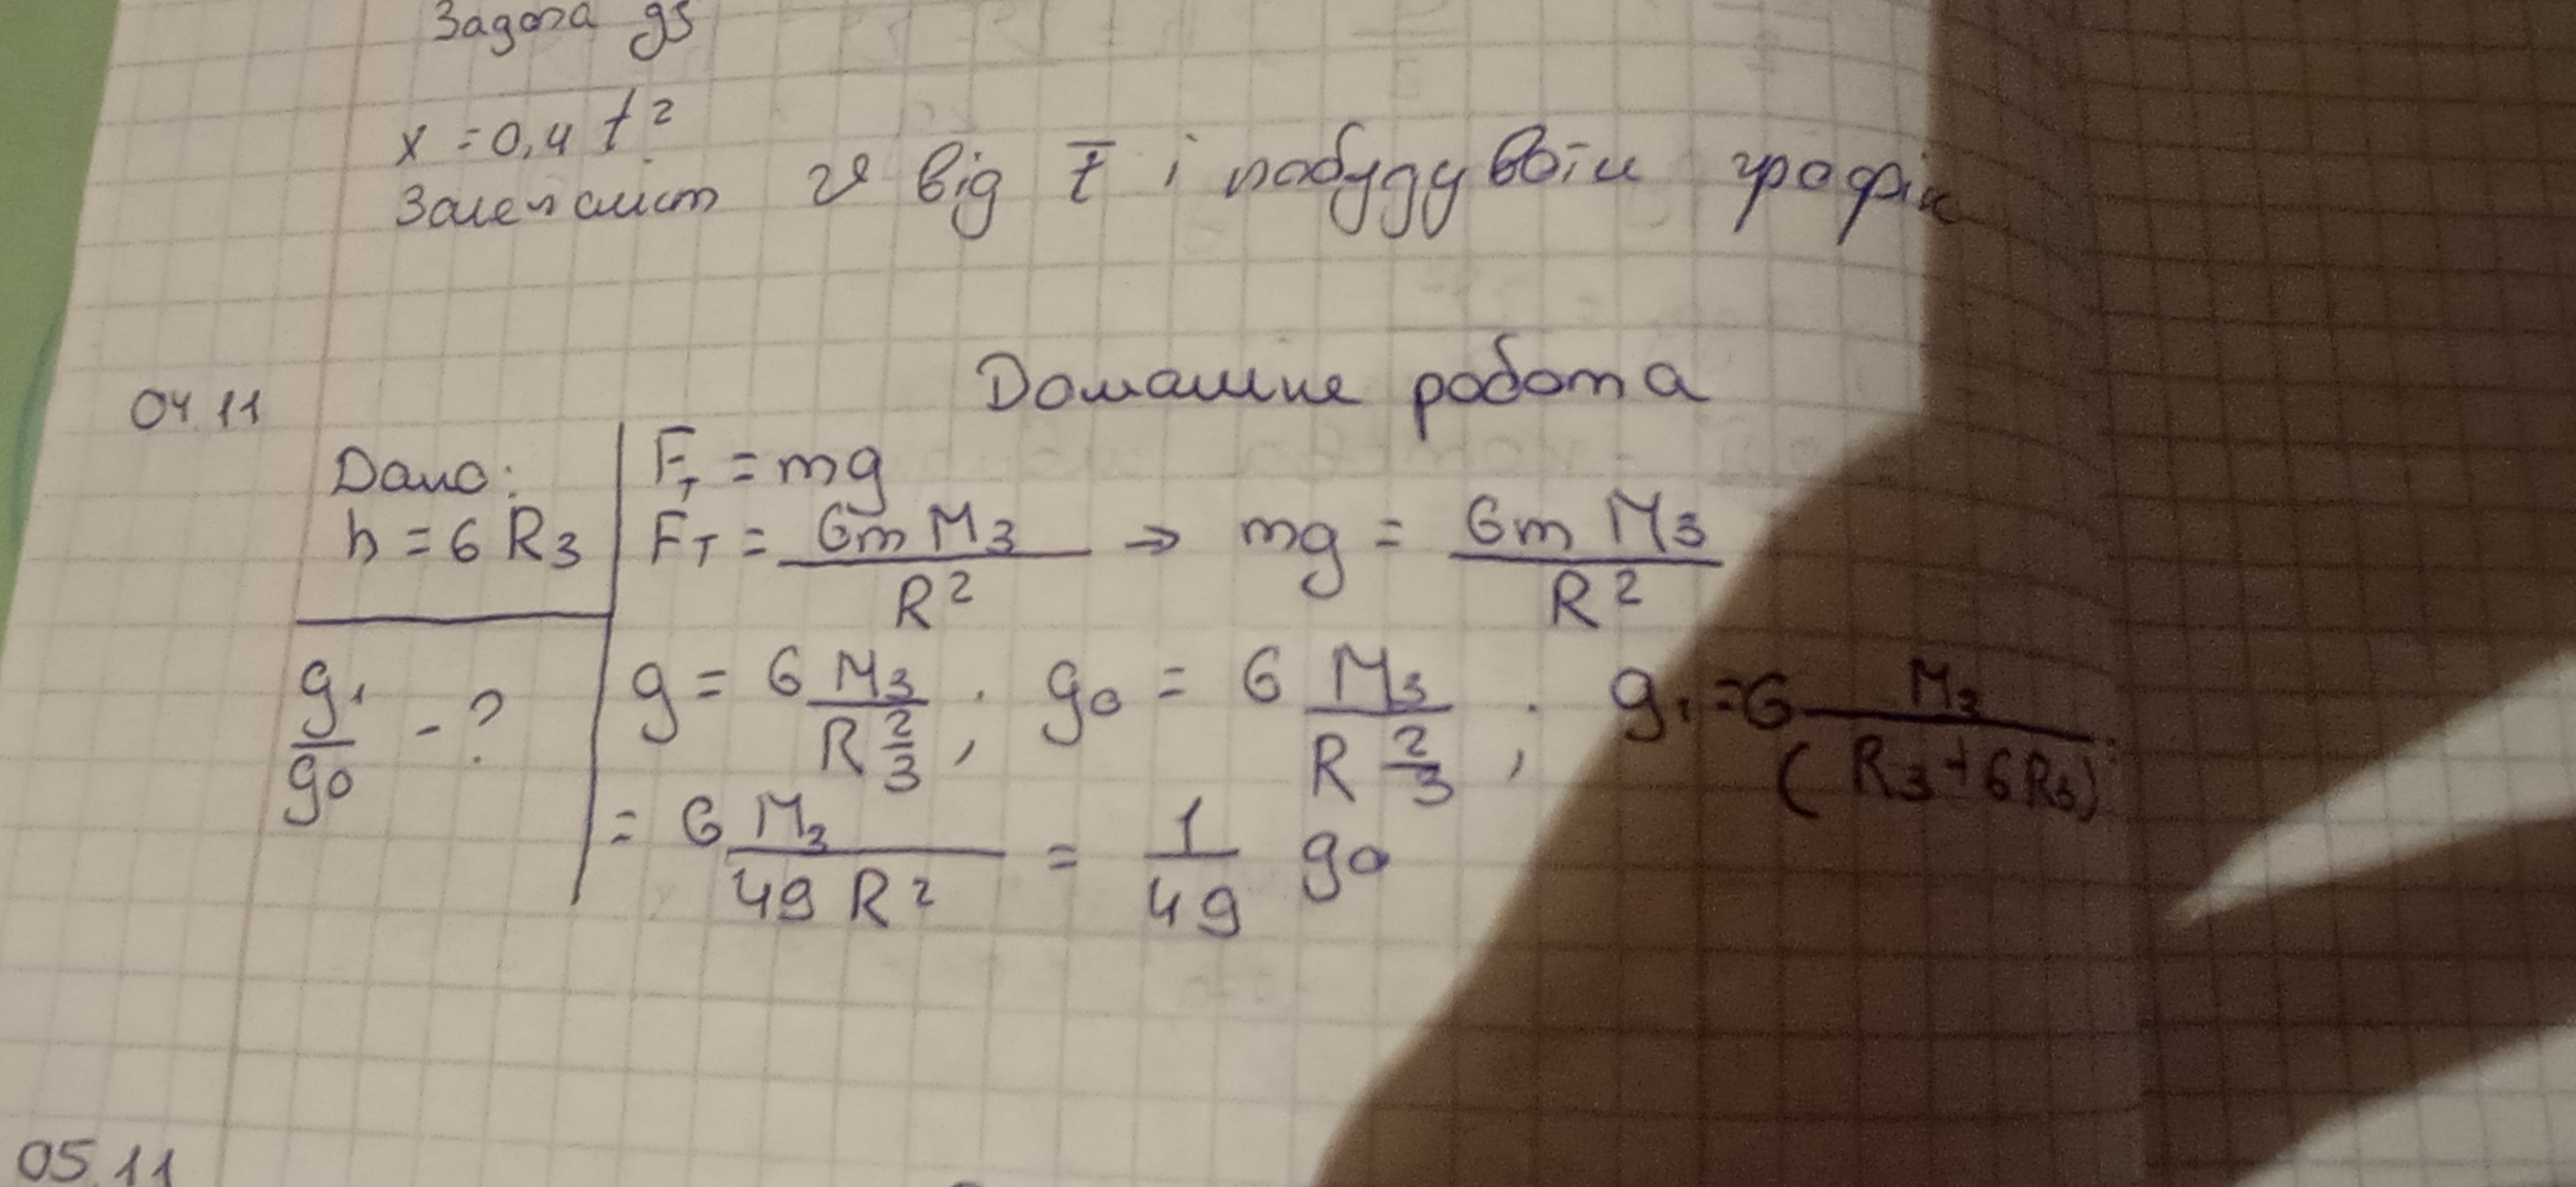 Задача дз
x = 0,4 t²
Залежність v від t і побудувати графік
Домашнє робота
04.11
Дано:
h = 6 R₃
g₁/g₀ - ?
Fт = mg
Fт = Gm M₃ / R² → mg = Gm M₃ / R²
g = G M₃ / R₃²; g₀ = G M₃ / R₃²; g₁ = G M₃ / (R₃ + 6R₃)
= G M₃ / 49 R² = 1/49 g₀
05.11